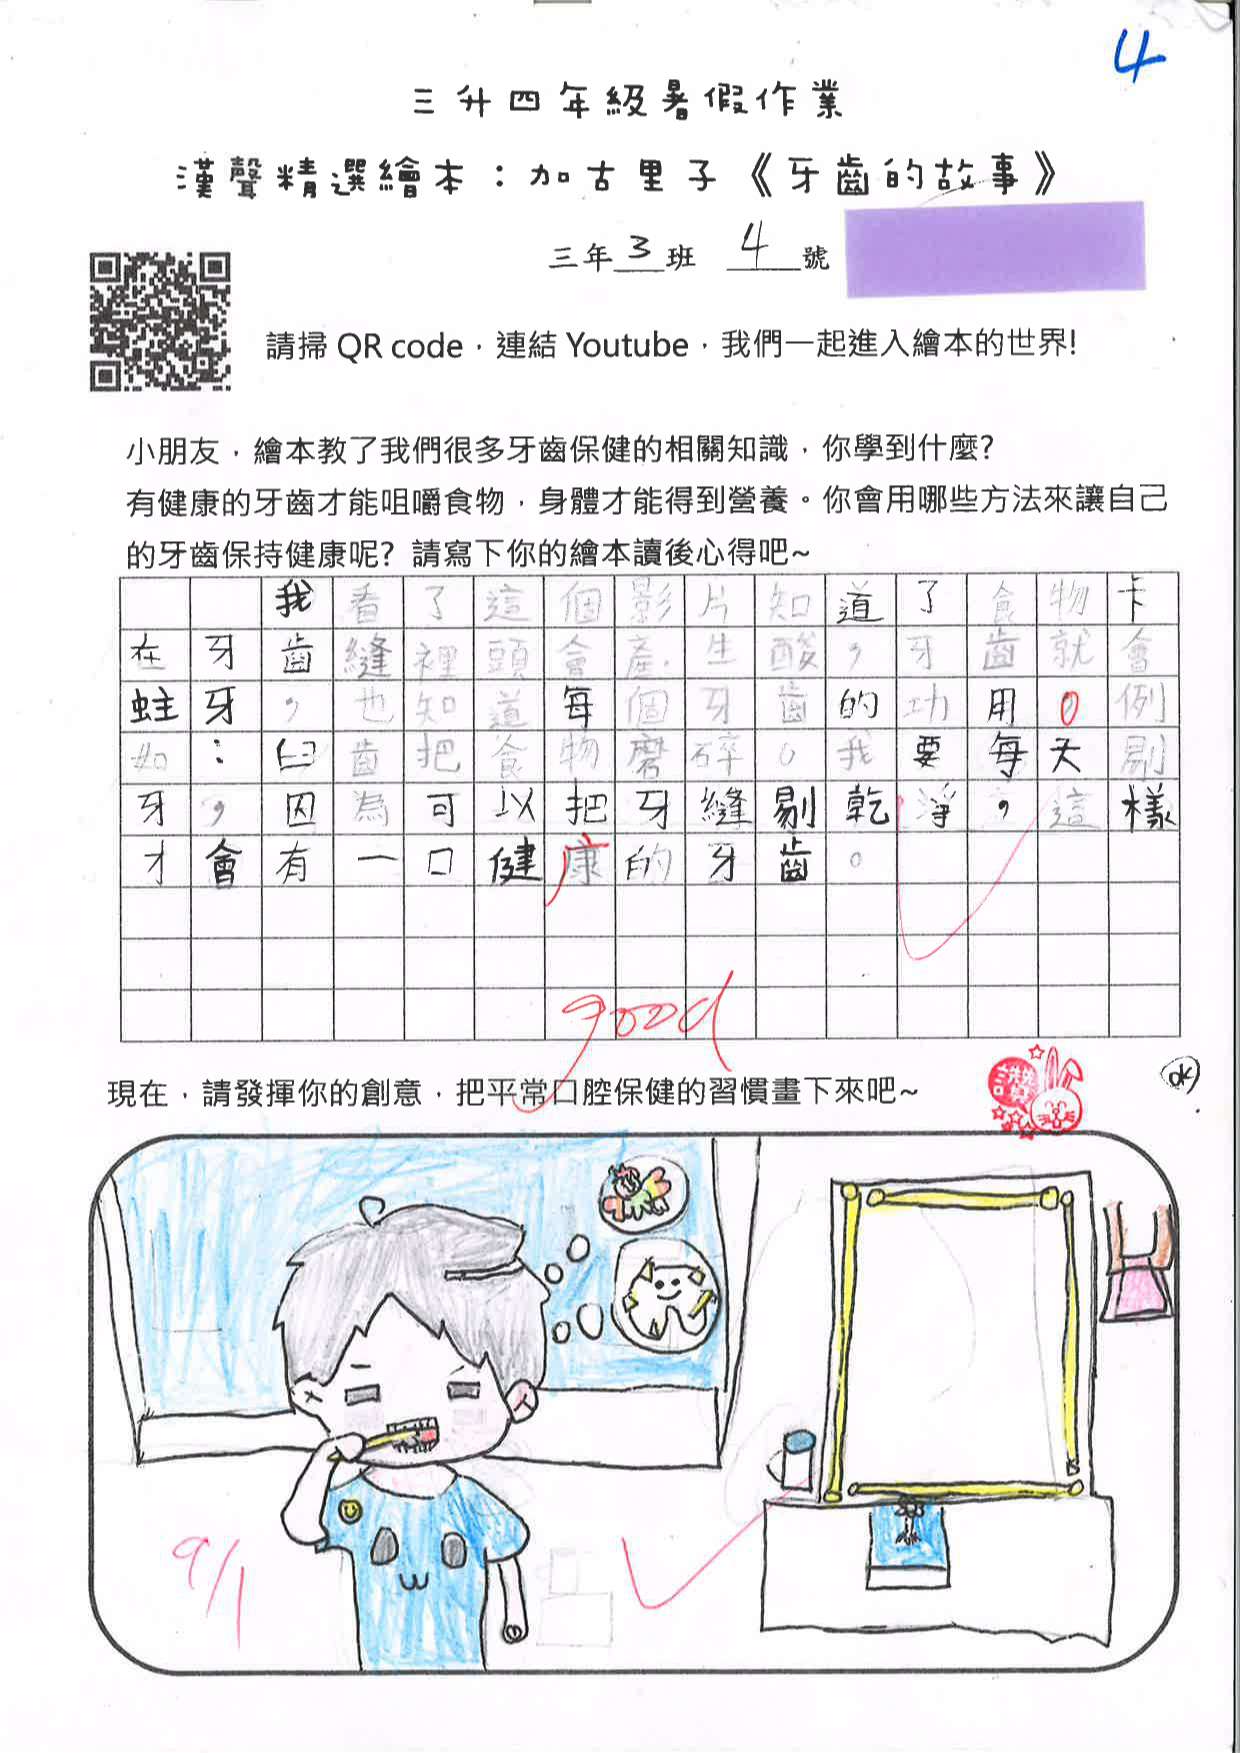 4
三升四年級暑假作業
漢聲精選繪本：加古里子《牙齒的故事》
三年3班 4號
請掃 QR code，連結 Youtube，我們一起進入繪本的世界!
小朋友，繪本教了我們很多牙齒保健的相關知識，你學到什麼?
有健康的牙齒才能咀嚼食物，身體才能得到營養。你會用哪些方法來讓自己
的牙齒保持健康呢? 請寫下你的繪本讀後心得吧~
我看了這個影片知道了食物卡
在牙齒縫裡頭會產生酸，牙齒就會
蛀牙，也知道每個牙齒的功用。例
如：臼齒把食物磨碎。我要每天剔
牙，因為可以把牙縫剔乾淨，這樣
才會有一口健康的牙齒。
good
現在，請發揮你的創意，把平常口腔保健的習慣畫下來吧~
讚
OK
9/1